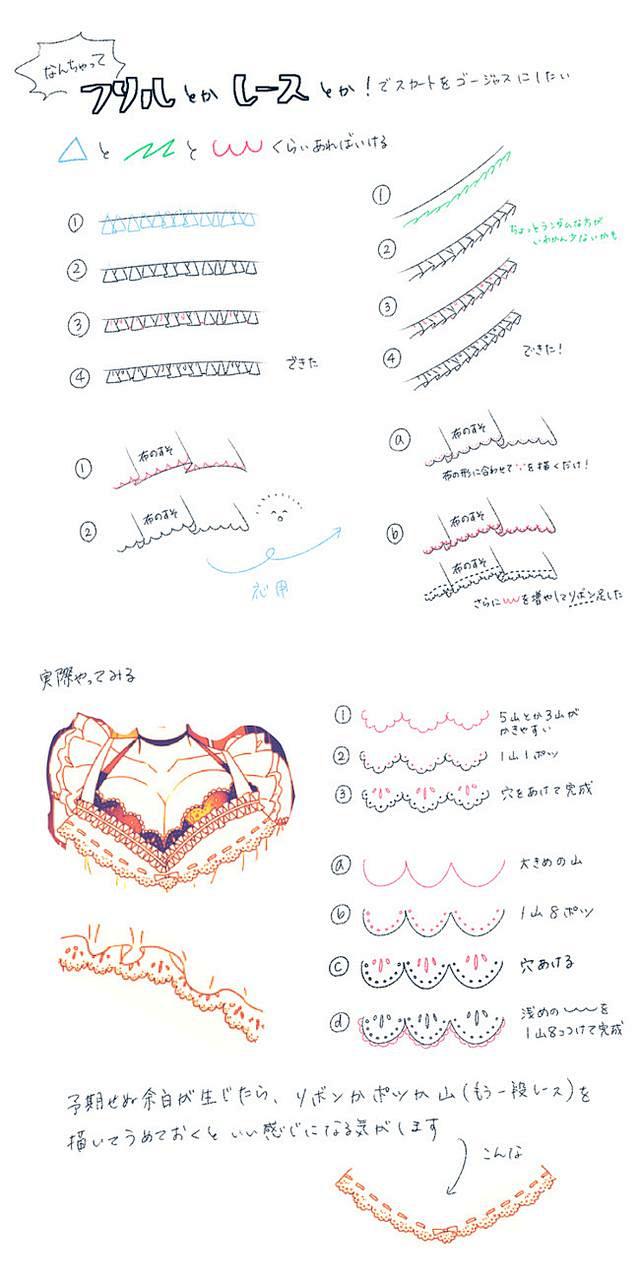 なんちゃって
フリルとか レースとか！でスカートをゴージャスにしたい
△と と くらいあればいける
①
②
③
④ できた
①
ちょっとランダムな方が
いわかん少ないかも
②
③
④ できた！
① 布のすそ
② 布のすそ
応用
ⓐ 布のすそ
布の形に合わせて を描くだけ！
ⓑ 布のすそ
布のすそ
さらに を増やしてリボン足した
実際やってみる
① 5山とか3山が
かきやすい
② 1山1ポツ
③ 穴をあけて完成
ⓐ 大きめの山
ⓑ 1山8ポツ
ⓒ 穴あける
ⓓ 浅めの を
1山8コつけて完成
予期せぬ余白が生じたら、リボンかポツか山(もう一段レース)を
描いてうめておくといい感じになる気がします
こんな